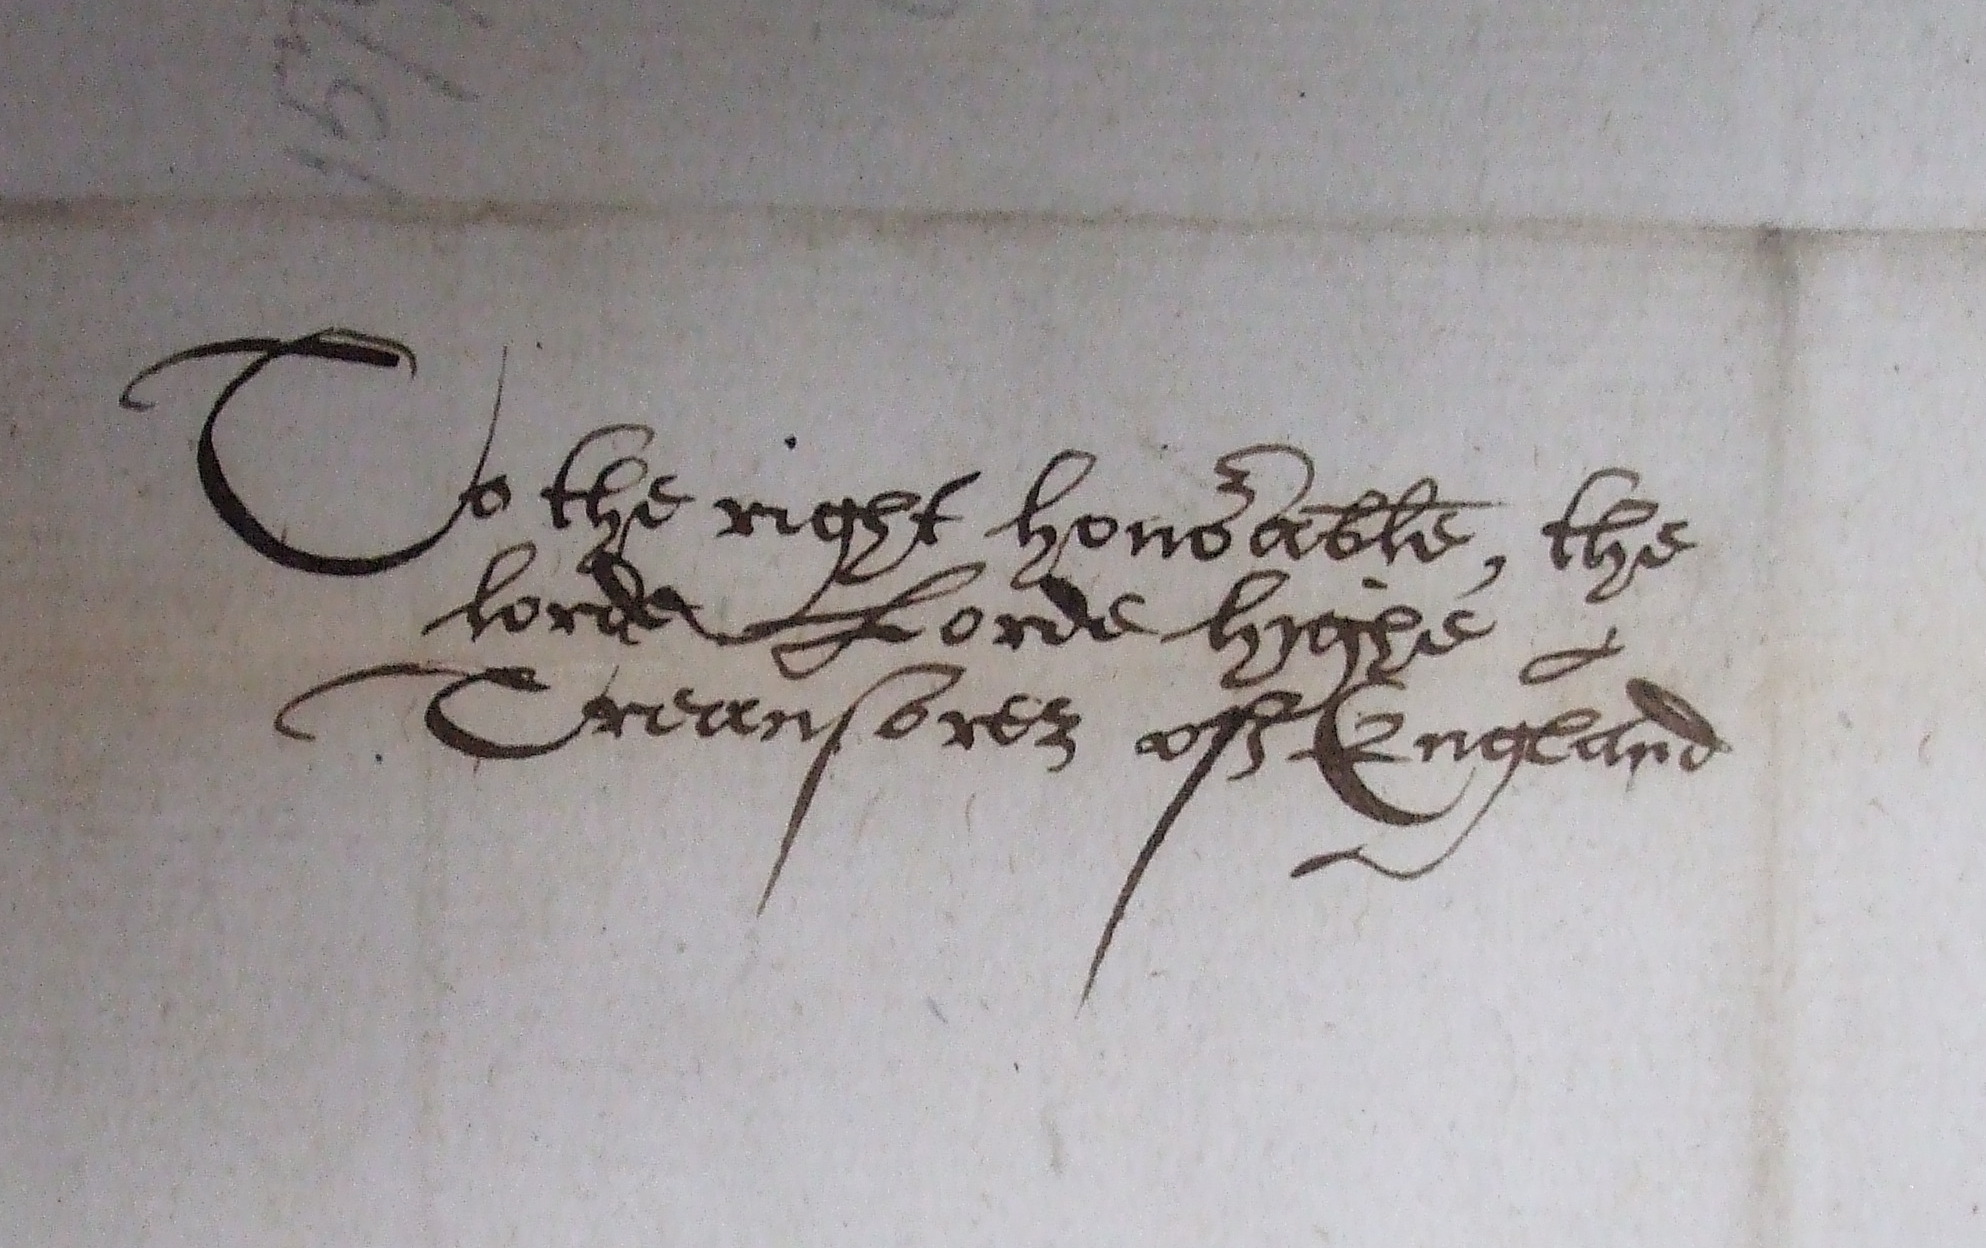 To the right honorable, the
lorde Lorde highe
Treausorer off England